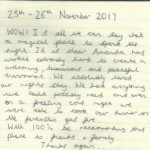 25th - 26th November 2017
WOW! Is all we can say. What
a magical place to spend the
night. It is clear Amanda has
worked extremely hard to create a
welcoming, luxurious and peaceful
environment. We absolutely loved
our night stay. We had everything
we could possibly need and even
on a freezing cold night we
were able to cook our dinner on
the fire
Will 100% be recommending this
place to friends + family
Thanks again